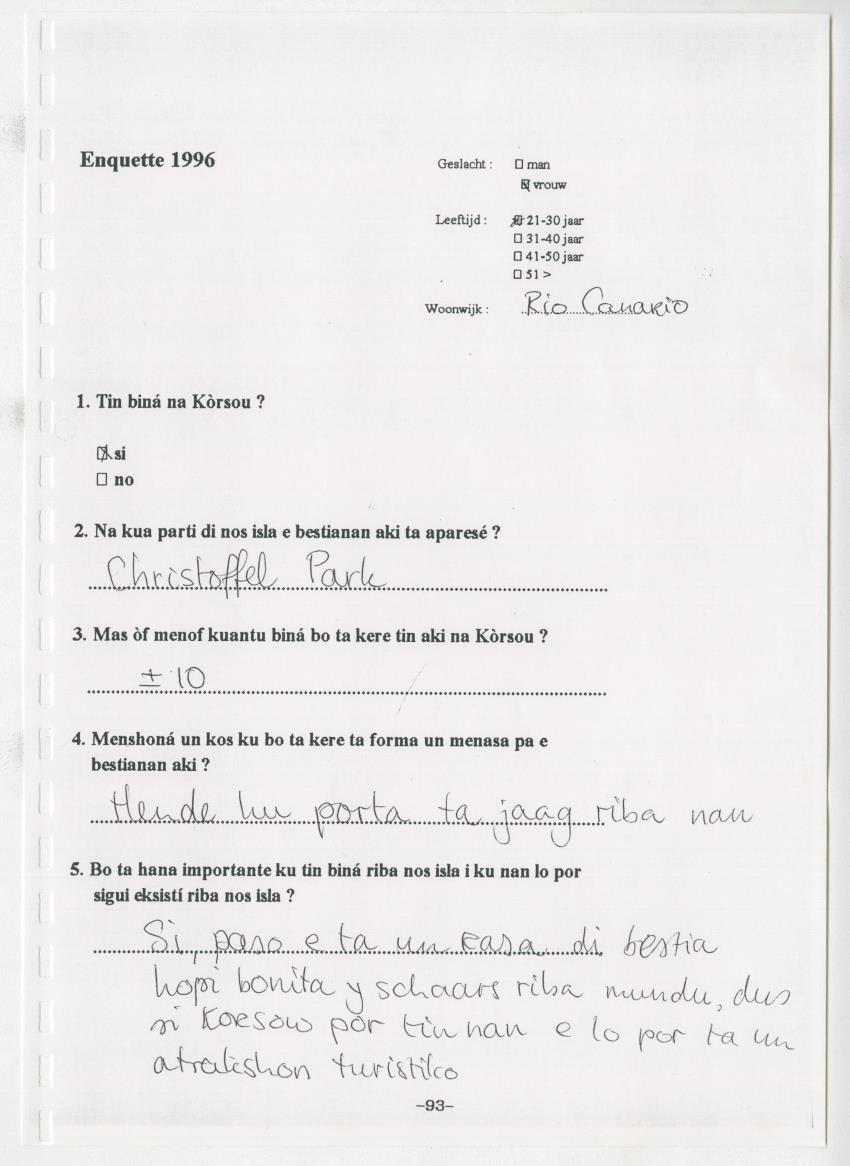 Enquette 1996
Geslacht : ☐ man
☒ vrouw
Leeftijd : ☒ 21-30 jaar
☐ 31-40 jaar
☐ 41-50 jaar
☐ 51 >
Woonwijk : Rio Canario
1. Tin biná na Kòrsou ?
☒ si
☐ no
2. Na kua parti di nos isla e bestianan aki ta aparesé ?
Christoffel Park
3. Mas òf menof kuantu biná bo ta kere tin aki na Kòrsou ?
± 10
4. Menshoná un kos ku bo ta kere ta forma un menasa pa e
bestianan aki ?
Hende ku porta ta jaag riba nan
5. Bo ta hana importante ku tin biná riba nos isla i ku nan lo por
sigui eksistí riba nos isla ?
Si, paso e ta un rasa di bestia
hopi bonita y schaars riba mundu, dus
si Korsow por tin nan e lo por ta un
atrakshon turistiko
-93-